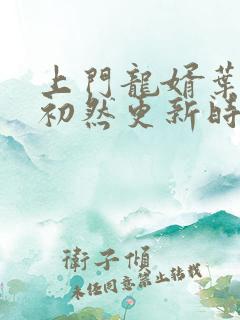 上門龍婿葉
初然更新時
衛子傾
未任同意禁止轉載